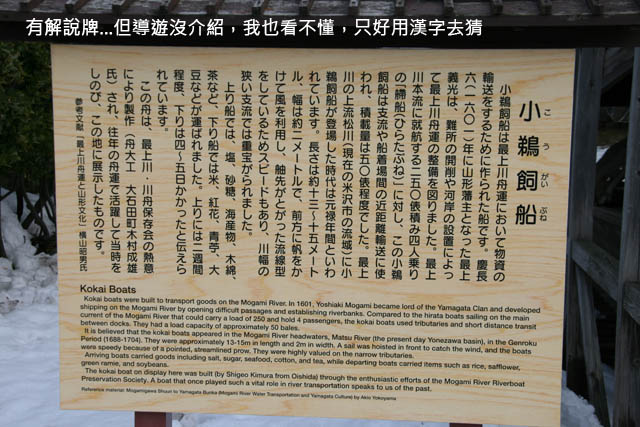 有解說牌...但導遊沒介紹，我也看不懂，只好用漢字去猜
小鵜飼船
こうがいぶね
小鵜飼船は最上川舟運において物資の
輸送をするために作られた船です。慶長
六（一六〇一）年に山形藩主となった最上
義光は、難所の開削や河岸の設置によっ
て最上川舟運の整備を図りました。最上
川本流に就航する二五〇俵積み四人乗り
の「艜船（ひらたぶね）」に対し、この小鵜
飼船は支流や船着場間の近距離輸送に使
われ、積載量は五〇俵程度でした。最上
川の上流松川（現在の米沢市の流域）に小
鵜飼船が登場した時代は元禄年間といわ
れています。長さは約十三～十五メート
ル、幅は約二メートルで、前方に帆をか
けて風を利用し、舳先がとがった流線型
をしているためスピードもあり、川幅の
狭い支流では重宝がられました。
上り船では、塩、砂糖、海産物、木綿、
茶など、下り船では米、紅花、青苧、大
豆などが運ばれました。上りには二週間
程度、下りは四～五日かかったと伝えら
れています。
この舟は、最上川・川舟保存会の熱意
により製作（舟大工 大石田町木村成雄
氏）され、往年の舟運で活躍して当時を
しのび、この地に展示したものです。
参考文献「最上川舟運と山形文化」横山昭男氏
Kokai Boats
Kokai boats were built to transport goods on the Mogami River. In 1601, Yoshiaki Mogami became lord of the Yamagata Clan and developed
shipping on the Mogami River by opening difficult passages and establishing riverbanks. Compared to the hirata boats sailing on the main
current of the Mogami River that could carry a load of 250 and hold 4 passengers, the kokai boats used tributaries and short distance transit
between docks. They had a load capacity of approximately 50 bales.
It is believed that the kokai boats appeared in the Mogami River headwaters, Matsu River (the present day Yonezawa basin), in the Genroku
Period (1688-1704). They were approximately 13-15m in length and 2m in width. A sail was hoisted in front to catch the wind, and the boats
were speedy because of a pointed, streamlined prow. They were highly valued on the narrow tributaries.
Arriving boats carried goods including salt, sugar, seafood, cotton, and tea, while departing boats carried items such as rice, safflower,
green ramie, and soybeans.
The kokai boat on display here was built (by Shigeo Kimura from Oishida) through the enthusiastic efforts of the Mogami River Riverboat
Preservation Society. A boat that once played such a vital role in river transportation speaks to us of the past.
Reference material: Mogamigawa Shuun to Yamagata Bunka (Mogami River Water Transportation and Yamagata Culture) by Akio Yokoyama